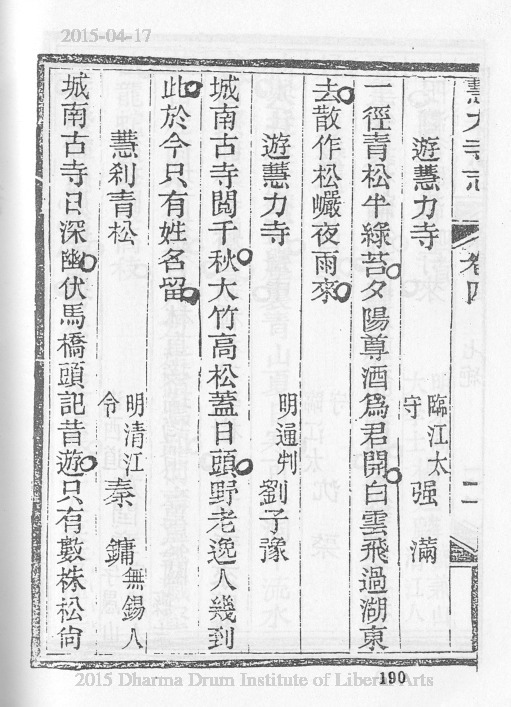 2015-04-17
慧力寺志 卷四 二
遊慧力寺 臨江太守 强滿
一徑青松半綠苔夕陽尊酒爲君開白雲飛過湖東
去散作松巖夜雨來
遊慧力寺 明通判 劉子豫
城南古寺閱千秋大竹高松蓋日頭野老逸人幾到
此於今只有姓名留
慧剎青松 明清江令 秦鏞 無錫人
城南古寺日深幽伏馬橋頭記昔遊只有數株松尙
190
2015 Dharma Drum Institute of Liberal Arts